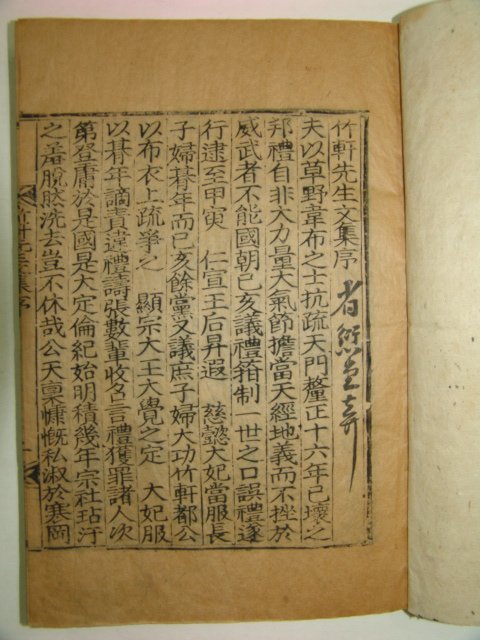 竹軒先生文集序
夫以草野韋布之士抗疏天門釐正十六年已壞之
邦禮自非大力量大氣節擔當天經地義而不挫於
威武者不能國朝己亥議禮箝制一世之口誤禮遂
行逮至甲寅 仁宣王后昇遐 慈懿大妃當服長
子婦朞年而己亥餘黨又議庶子婦大功竹軒都公
以布衣上疏爭之 顯宗大王大覺之定 大妃服
以朞年謫責違禮譸張數輩收名言禮獲罪諸人次
第登庸於是國是大定倫紀始明積幾年宗社玷汙
之辱脫然洗去豈不休哉公天稟慷慨私淑於寒岡